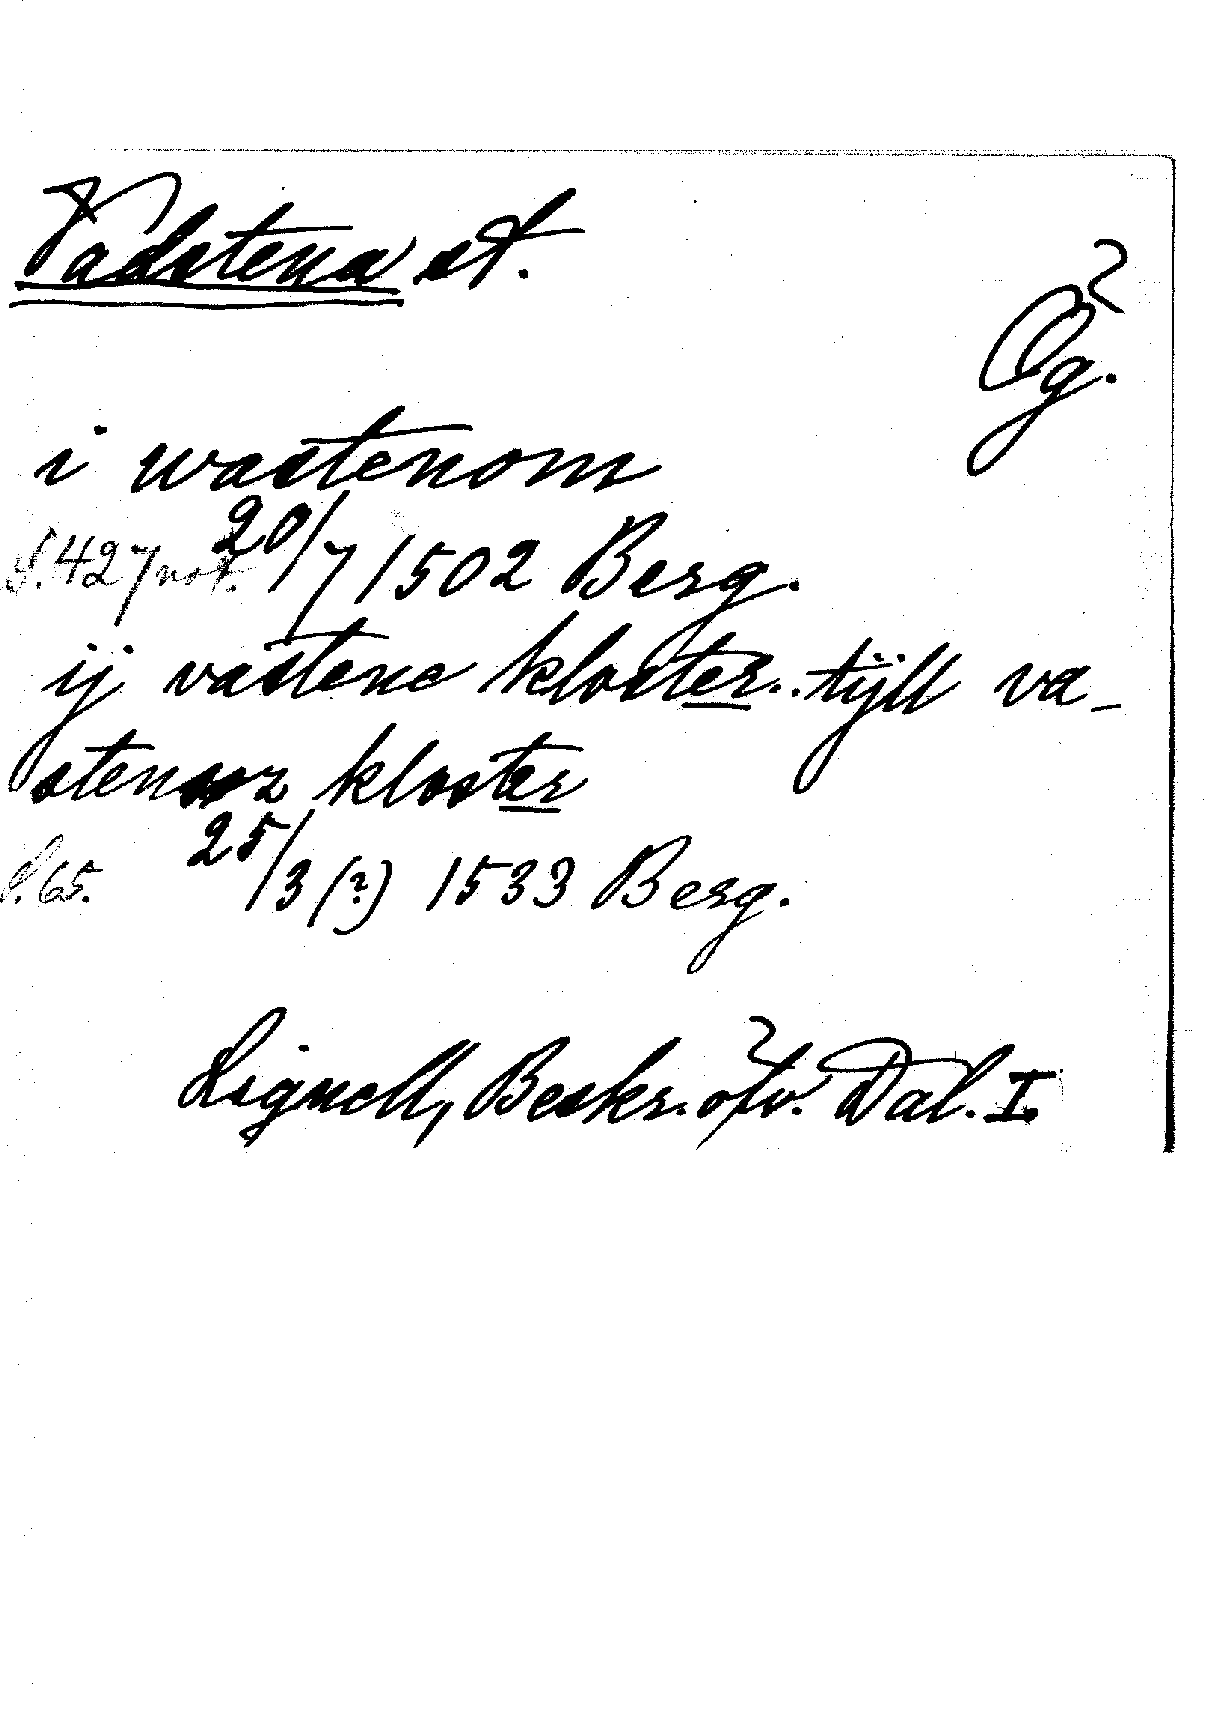 Vadstena st.
Ög.
i wastenom
S. 427 not. 20/7 1502 Berg.
ij vastene kloster.. tijll va-
kloster
S. 65. 25/3 (?) 1533 Berg.
Lignell, Beskr. Dal. I.